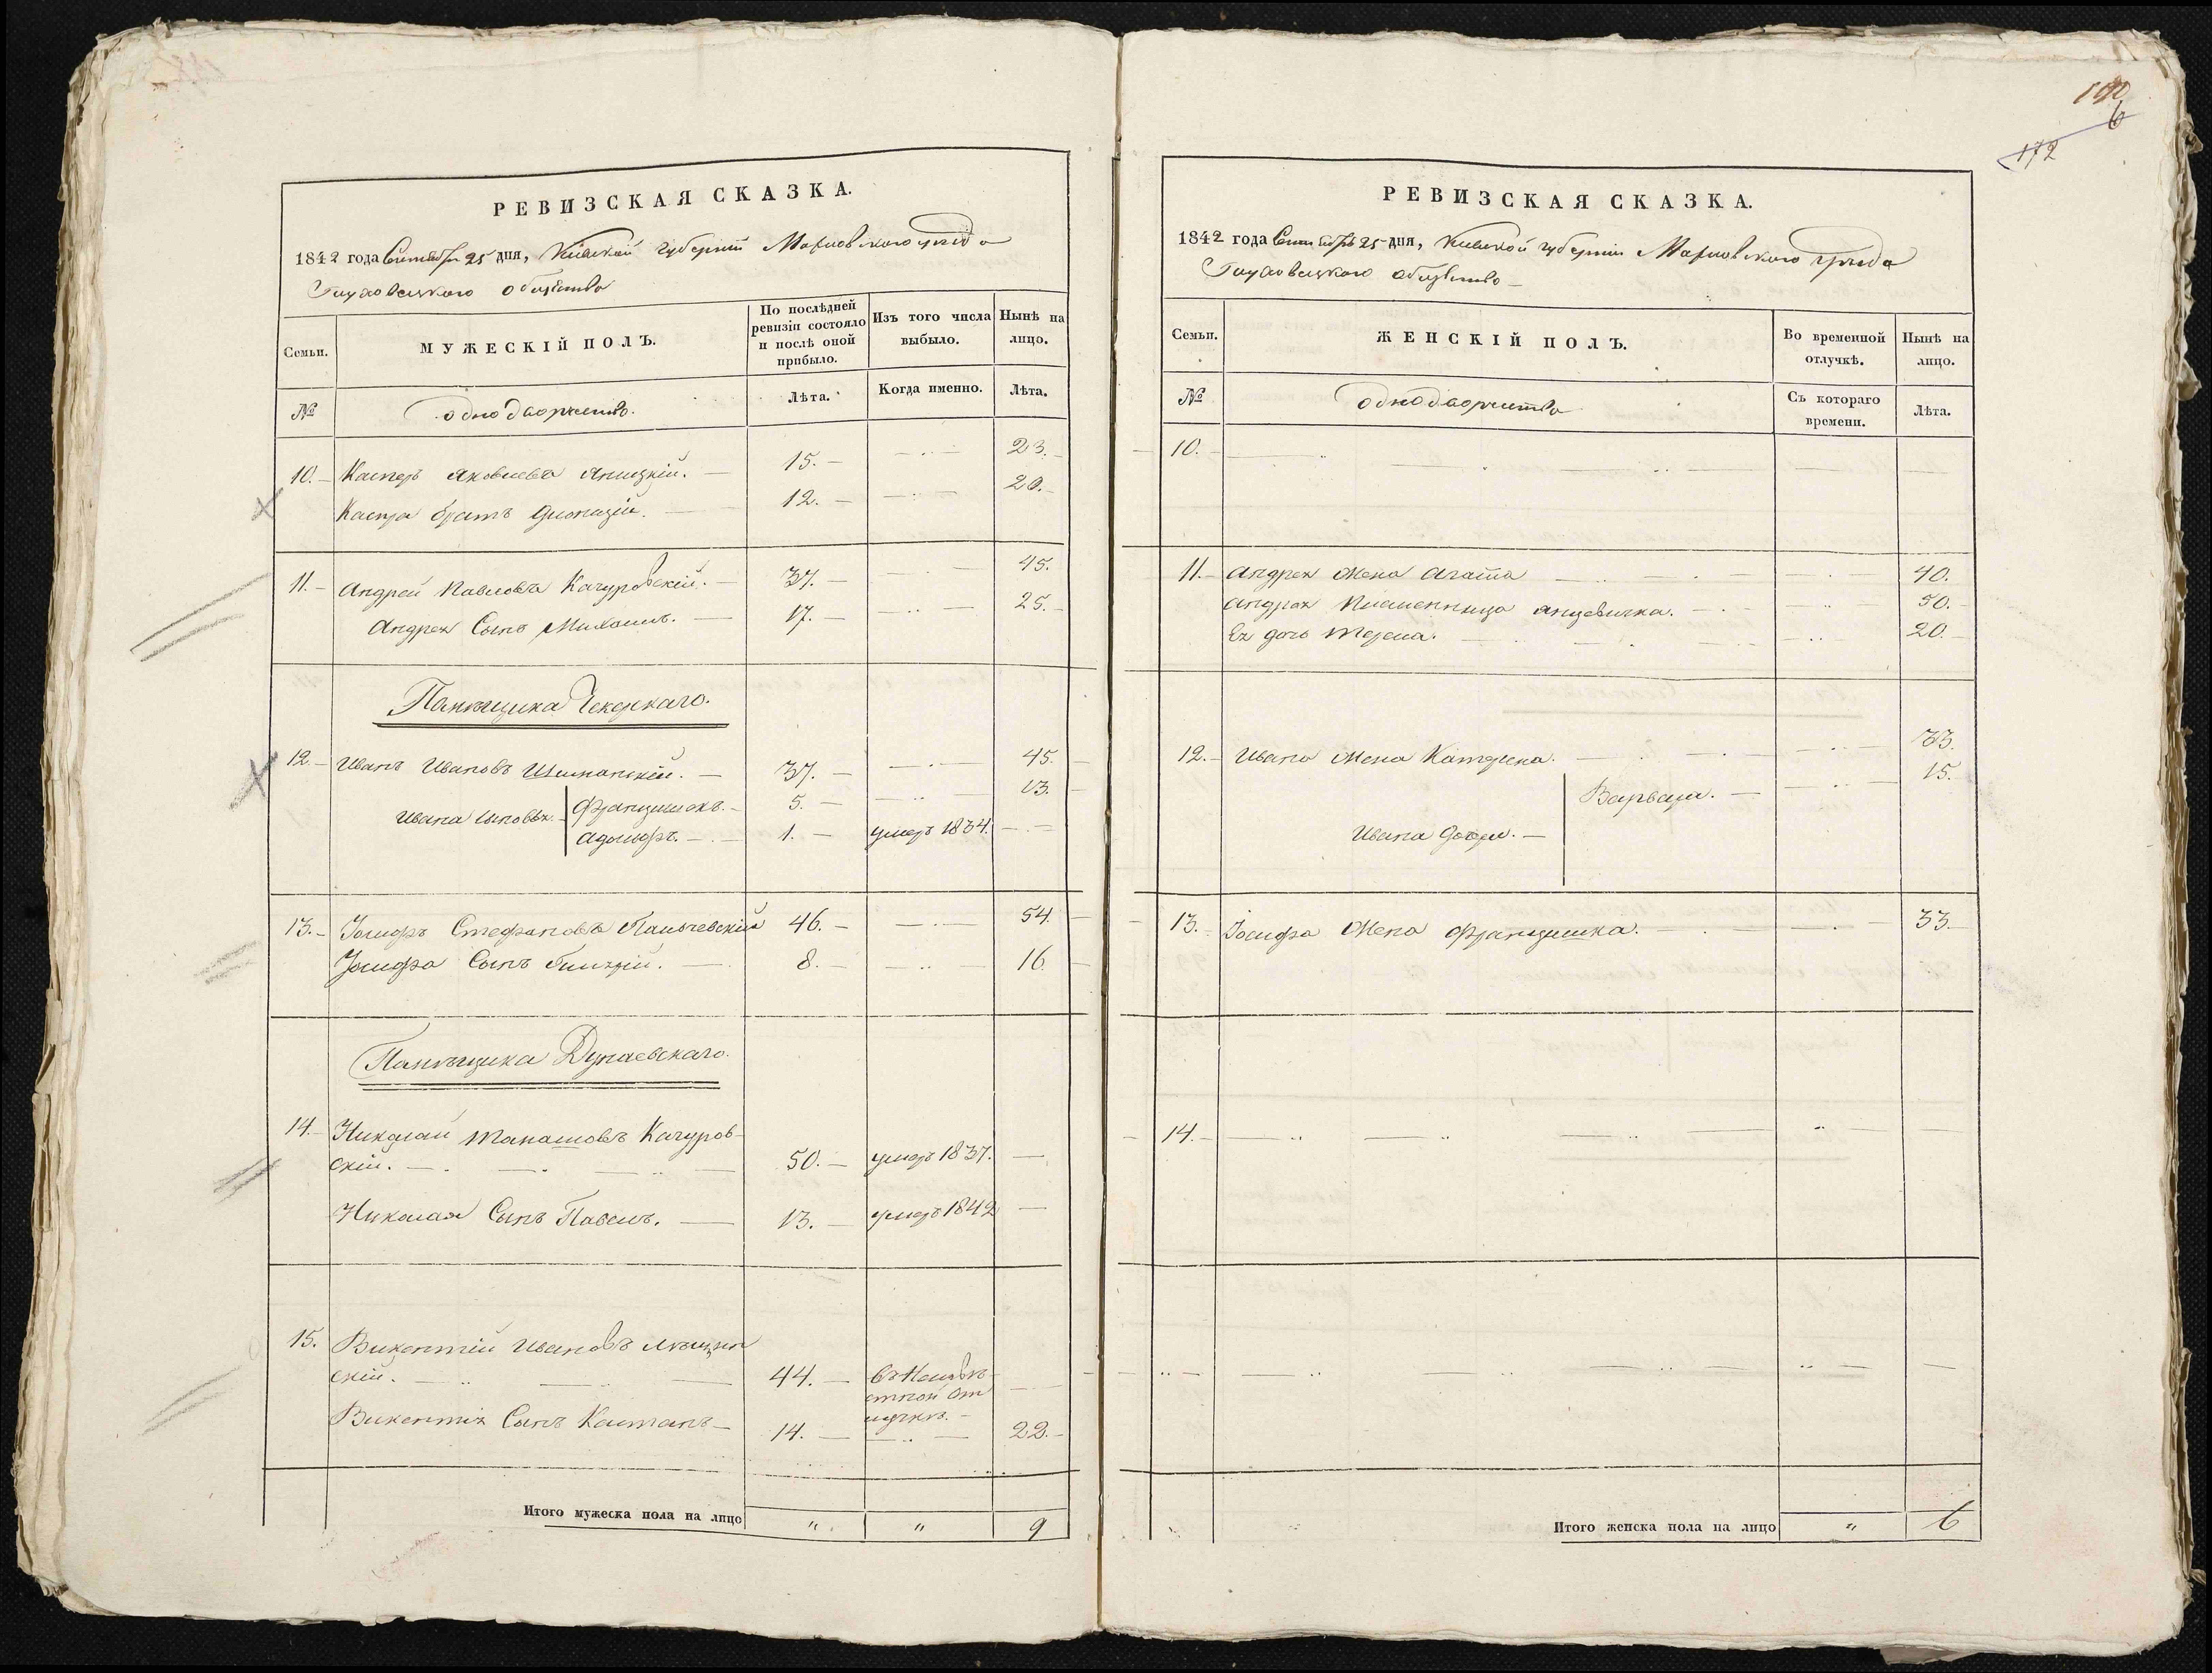 РЕВИЗСКАЯ СКАЗКА.
1842 года Сентября 25 дня, Кіевской губерніи уѣзда
общества
Семьи.
МУЖЕСКІЙ ПОЛЪ.
По послѣдней ревизіи состояло и послѣ оной прибыло.
Изъ того числа выбыло.
Нынѣ на лицо.
№
однодворцы
Лѣта.
Когда именно.
Лѣта.
10. Касперъ Яковлевъ Яницкій. 15. 23.
Каспра братъ Діонизій. 12. 20.
11. Андрей Павловъ Качуровскій. 37. 45.
Андрея Сынъ Михаилъ. 17. 25.
Помѣщика
12. Иванъ Ивановъ Шиманскій. 37. 45.
Ивана сыновья Францишекъ. 5. 13.
Адольфъ. 1. умеръ 1834.
13. Іосифъ Стефановъ Пальчевскій 46. 54.
Іосифа Сынъ 8. 16
Помѣщика Дунаевскаго.
14. Николай Качуров-
скій. 50. умеръ 1837.
Николая Сынъ Павелъ. 13. умеръ 1842
15. Викентій Ивановъ
скій. 44. въ неизвѣ-
стной От
лучкѣ.
Викентія Сынъ Каетанъ 14. 22.
Итого мужеска пола на лицо " " 9
190
6
172
РЕВИЗСКАЯ СКАЗКА.
1842 года Сентября 25 дня, Кіевской губерніи уѣзда
общества
Семьи.
ЖЕНСКІЙ ПОЛЪ.
Во временной отлучкѣ.
Нынѣ на лицо.
№
Съ котораго времени.
Лѣта.
10.
11. Андрея Жена Агата 40.
Андрея Племенница 50.
Ея дочь 20.
12. Ивана Жена Катерена. 33.
Варвара. 15.
Ивана дочери.
13. Іосифа Жена Францишка. 33.
14.
Итого женска пола на лицо " 6